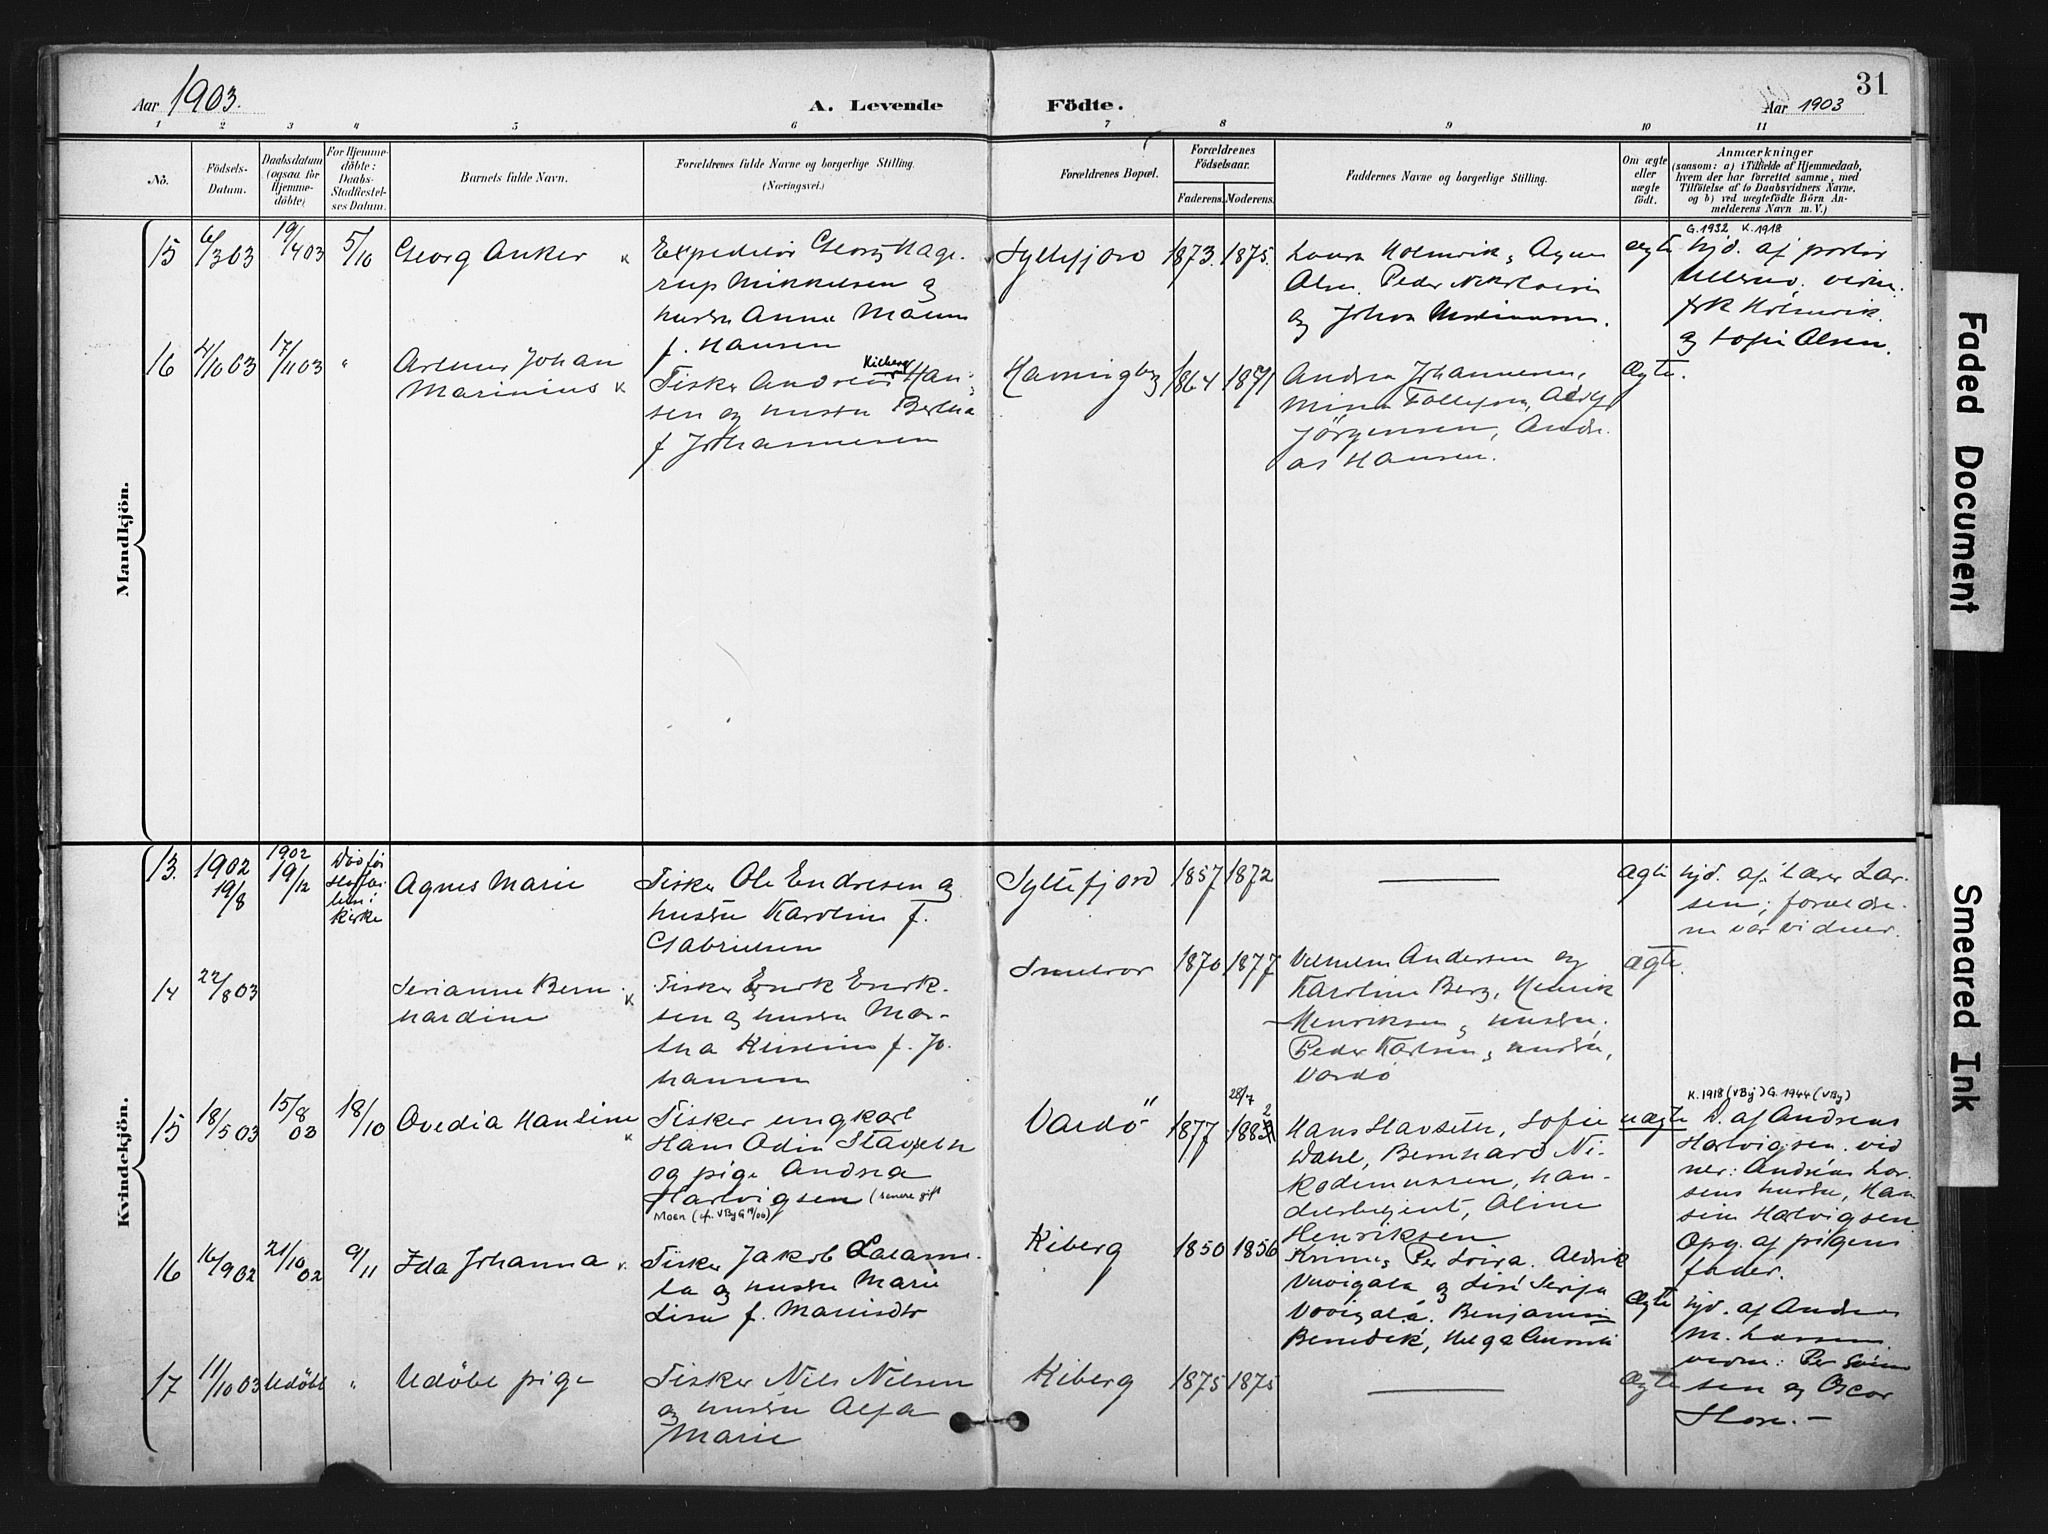 31
Aar 1903.
A. Levende
Födte.
Aar 1903
1 2 3 4 5 6 7 8 9 10 11
No.
Födsels-
Datum.
Daabsdatum
(ogsaa for
Hjemme-
döbte)
For Hjemme-
döbte:
Daabs-
Stadfæstel-
ses Datum.
Barnets fulde Navn.
Forældrenes fulde Navne og borgerlige Stilling.
(Næringsvei.)
Forældrenes Bopæl.
Forældrenes
Födselsaar.
Faderens.
Moderens.
Faddernes Navne og borgerlige Stilling.
Om ægte
eller
uægte
födt.
Anmærkninger
(saasom: a) i Tilfælde af Hjemmedaab,
hvem der har forrettet samme, med
Tilföielse af to Daabsvidners Navne,
og b) ved uægtefödte Börn An-
melderens Navn m. V.)
Mandkjön.
15
6/3 03
19/4 03
5/10
Georg Anker
Expeditör Georg Hage-
rup Mikkelsen og
hustru Anna
f. Hansen
Syltefjord
1873.
1875.
Laura Holmvik, Agnes
Olsen. Peder Nikolaisen
og Johan
ægte
G. 1932 K. 1918
hjd. af
vidne.
frk Holmvik
og Sofie Olsen.
16
4/10 03
17/11 03
"
Johan
Marinius
Kiberg
Fisker Andreas Han-
sen og hustru Bertha
f Johannesen
Havningberg
1864
1871
Andrea Johannesen,
Mina Tollefsen,
Jörgensen, Andre-
as Hansen.
Ægte.
Kvindekjön.
13.
1902
19/8
1902
19/12
kirke
Agnes Marie
Fisker Ole Endresen og
hustru Karoline f.
Gabrielsen
Syltefjord
1857
1872
ægte
hjd. af lærer Lar-
sen; forældre-
ne var vidner.
14
22/8 03
Serianne Bern-
hardine
Fisker Enok Enok-
sen og hustru Mar-
tha f. Jo-
hansen
Smelror
1870
1877
Vilhelm Andersen og
Karoline Berg, Henrik
Henriksen og hustru,
Peder Karlsen og hustru,
Vardö
ægte.
15
18/5 03
15/8 03
18/10
Ovedia Hansine
Fisker ungkarl
Hans Odin
og pige Andrea
Hartvigsen (senere gift
Moen (cf. VByG 19/06)
Vardö
1877
28/7
1882
Hans Stavseth, Sofie
Dahl, Bernhard Ni-
kodemussen, han-
delsbetjent, Oline
Henriksen
uægte
K. 1918 (VBy) G. 1944 (VBy)
D. af Andreas
Hartvigsen. vid
ner: Andreas Lar-
sens hustru, Han
sine Hartvigsen
Opg. af pigens
fader.
16
16/9 02
21/10 02
9/11
Ida Johanna
Fisker Jakob
og hustru Marie
Lisa f.
Kiberg
1850
1856
Benjamin
Benedik, Helga
Ægte
hjd. af Andreas
M. Larsen
vidne: Per
sen og Oscar
17
11/10 03
Udöbt
"
Udöbt pige
Fisker Nils Nilsen
og hustru
Marie
Kiberg
1875
1875
Ægte
Faded Document
Smeared Ink